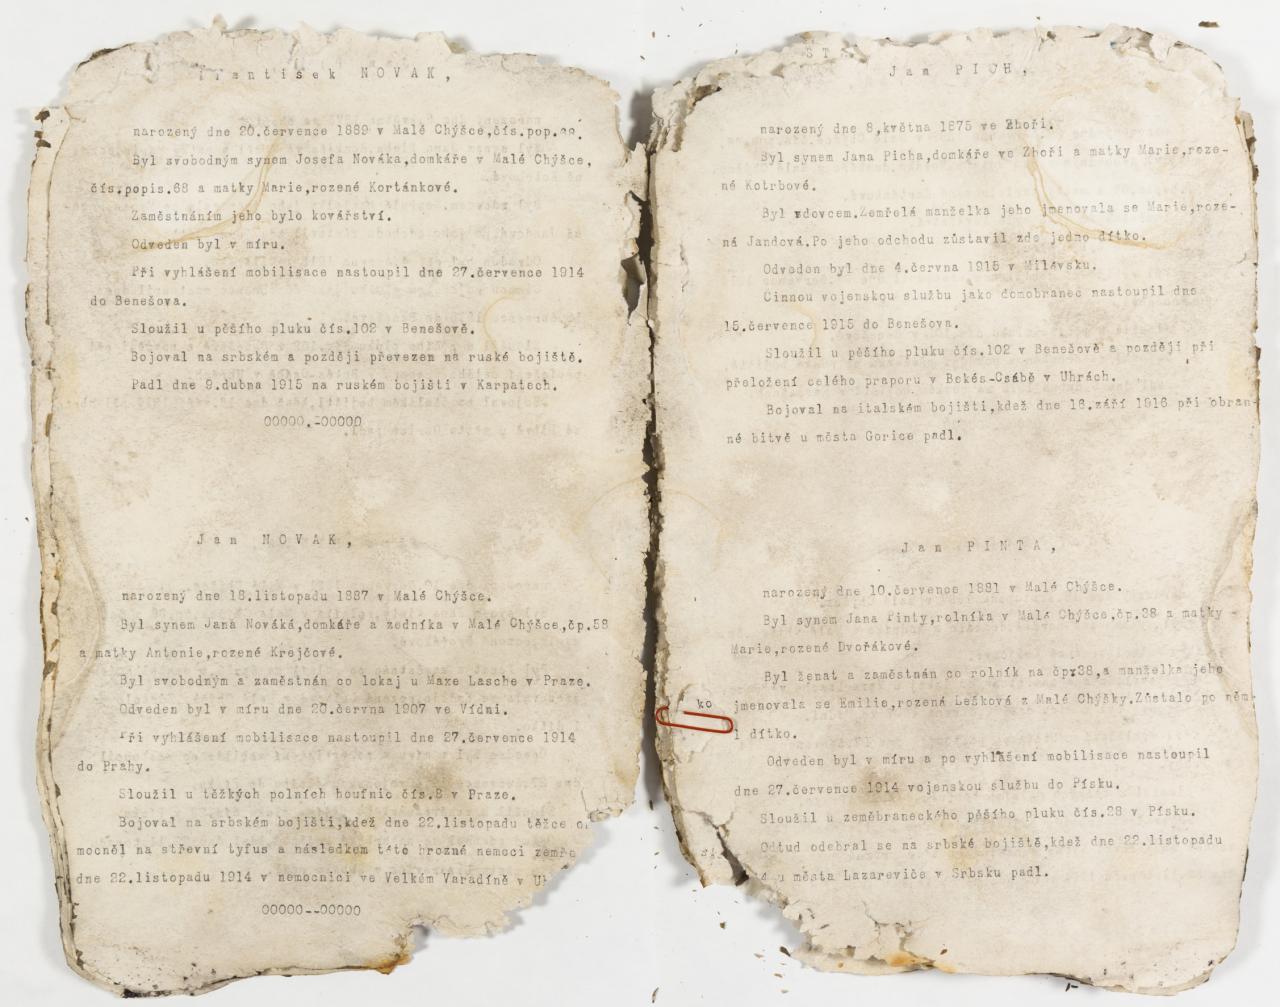 František NOVAK,
narozený dne 20.července 1889 v Malé Chýšce,čís.pop.
Byl svobodným synem Josefa Nováka,domkáře v Malé Chýšce,
čís.popis.68 a matky Marie,rozené Kortánkové.
Zaměstnáním jeho bylo kovářství.
Odveden byl v míru.
Při vyhlášení mobilisace nastoupil dne 27.července 1914
do Benešova.
Sloužil u pěšího pluku čís.102 v Benešově.
Bojoval na srbském a později převezen na ruské bojiště.
Padl dne 9.dubna 1915 na ruském bojišti v Karpatech.
OOOOO.-OOOOO
Jan NOVAK,
narozený dne 18.listopadu 1887 v Malé Chýšce.
Byl synem Jana Nováká,domkáře a zedníka v Malé Chýšce,čp.58
a matky Antonie,rozené Krejčové.
Byl svobodným a zaměstnán co lokaj u Maxe Lasche v Praze.
Odveden byl v míru dne 20.června 1907 ve Vídni.
Při vyhlášení mobilisace nastoupil dne 27.července 1914
do Prahy.
Sloužil u těžkých polních houfnic čís.8 v Praze.
Bojoval na srbském bojišti,kdež dne 22.listopadu těžce
mocněl na střevní tyfus a následkem této hrozné nemoci
dne 22.listopadu 1914 v nemocnici ve Velkém Varadíně v
OOOOO--OOOOO
Jan PICH,
narozený dne 8,května 1875 ve Zhoři.
Byl synem Jana Picha,domkáře ve Zhoři a matky Marie,roze-
né Kotrbové.
Byl vdovcem.Zemřelá manželka jeho jmenovala se Marie,roze-
ná Jandová.Po jeho odchodu zůstavil zde jedno dítko.
Odveden byl dne 4.června 1915 v Milévsku.
Činnou vojenskou službu jako domobranec nastoupil dne
15.července 1915 do Benešova.
Sloužil u pěšího pluku čís.102 v Benešově a později při
přeložení celého praporu v Bekés-Csábě v Uhrách.
Bojoval na italském bojišti,kdež dne 16.září 1916 při obran-
né bitvě u města Gorice padl.
Jan PINTA,
narozený dne 10.července 1881 v Malé Chýšce.
Byl synem Jana Pinty,rolníka v Malé Chýšce,čp.38 a matky
Marie,rozené Dvořákové.
Byl ženat a zaměstnán co rolník na čpx38,a manželka jeho
ko jmenovala se Emilie,rozená Lešková z Malé Chýšky.Zůstalo po něm
1 dítko.
Odveden byl v míru a po vyhlášení mobilisace nastoupil
dne 27.července 1914 vojenskou službu do Písku.
Sloužil u zeměbraneckého pěšího pluku čís.28 v Písku.
Odtud odebral se na srbské bojiště,kdež dne 22.listopadu
u města Lazareviče v Srbsku padl.